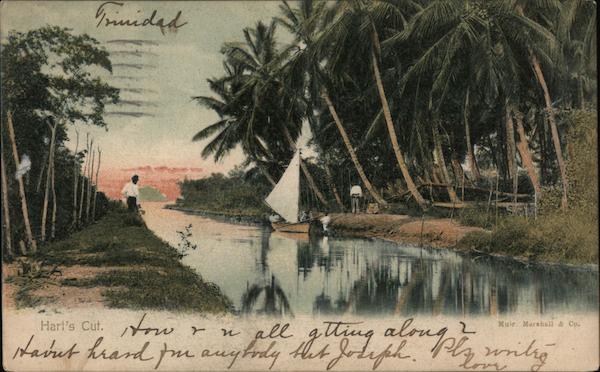 Trinidad
Hart's Cut.
Muir. Marshall & Co.
How r n all gtting along?
Hav'nt heard fm anybody but Joseph. Pls write
love